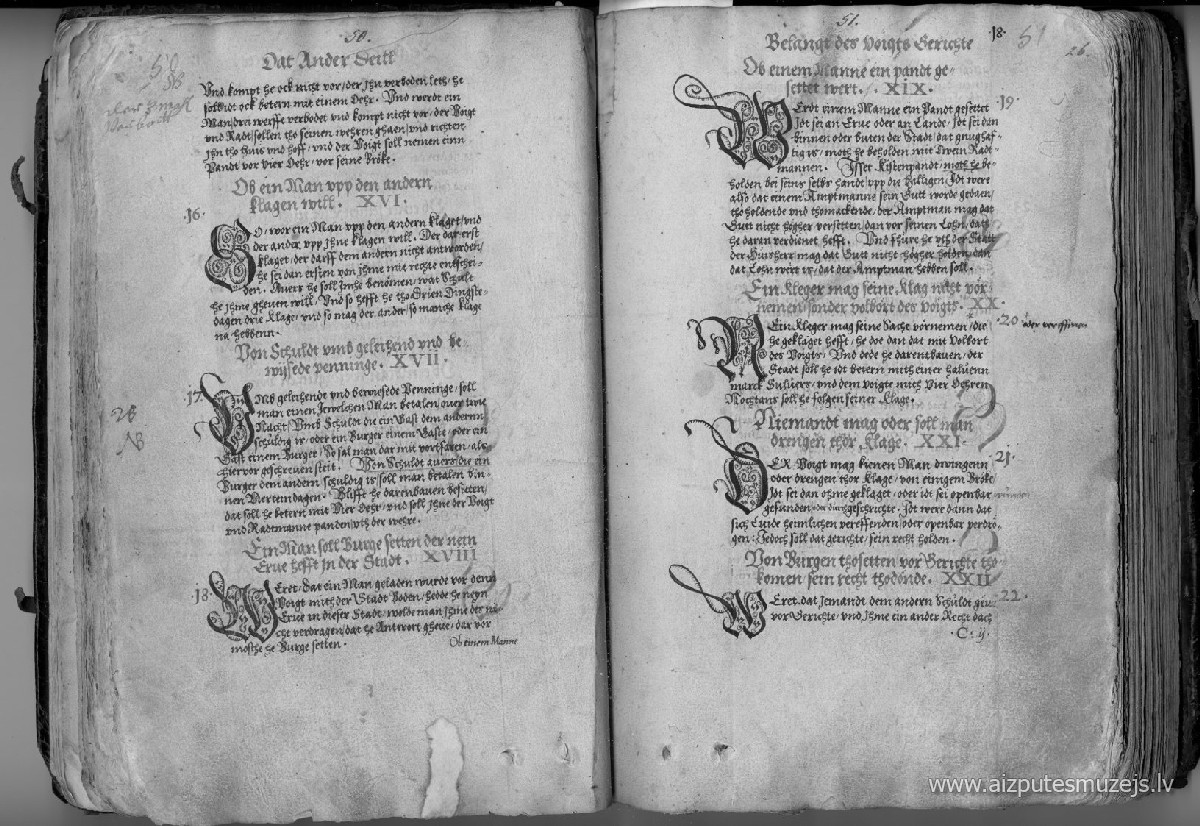 50.
Dat Ander Deill
Vnd kompt he ock nicht vor/der jhn verboden leth/he
soll idt ock betern mit einem Oehr. Vnd werdt ein
Man dre werffe verbodet vnd kompt nicht vor/der Voigt
vnd Radt/sollen tho seinen wehren ghaen/vnd richten
jhn tho huis vnd hoff/vnd der Voigt soll nemen einn
Pandt vor Vier Oehr/vor seine Bröke.
Ob ein Man vpp den andern
klagen will. XVI.
.16.
So wor ein Man vpp den andern klaget/vnd
der ander vpp jhne klagen will. Der dar erst
klaget/der darff dem andern nicht antworden/
he sei dan ersten von jhme mit rechte entschei-
den. Auerr he soll jmhe benömen/wat Schult
he jhme gheuen will. Vnd so hefft he tho Drien Dingste-
dagen drie klage/vnd so mag der ander/so manche klage
na hebbenn.
Von Schuldt vmb geleihend vnd be
wysede penninge. XVII.
17.
Vmb geleihende vnd bewiesede Penninge/soll
man einen Jewelchen Man betalen ouer twie
Nacht/Vmb Schuldt die ein Gast dem andernn
schuldig is/oder ein Burger einem Gaste/oder ein
Gast einem Burger/So sal man dar mit vortfaren/als
hier vor geschreuen steit. Von Schuldt auers die ein
Burger dem andern schuldig is/soll man betalen bin-
nen Vierteindagen. Blifft he darenbauen besitten/
dat soll he betern mit Vier Oehr/vnd soll jhne der Voigt
vnd Radtmanne panden vth der wehre.
28
NB
Ein Man soll Burge setten der nein
Erue hefft in der Stadt. XVIII
.18.
Weret/dat ein Man geladen wurde vor denn
Voigt mith der Stadt Boden/hedde he neyn
Erue in dieser Stadt/wolde man jhme der ni-
cht verdragen/dat he Antwort gheue/dar vor
mosthe he Burge setten.
Ob einem Manne
51.
.18.
51
26.
Belangt des Voigts Gerichte
Ob einem Manne ein pandt ge-
settet wert. XIX.
.19.
Werdt einem Manne ein Pandt gesettet
Jdt sei an Erue oder an Lande/Jdt sei dan
binnen oder buten der Stadt/dat gnughaf-
tig is/moth he beholden mit twein Radt
mannen. Jsset Kistenpandt/moth he be-
holden bei seins selbs handt vpp die hilligen/Jdt were
also dat einem Amptmanne sein Gutt worde gedaen/
tho holdende vnd thomackende/der Amptman mag dat
Gutt nicht högher versetten/dan vor seinen Lohn/dath
he daran verdienet hefft. Vnd fhure he vth der Statt
der Huisherr mag dat Gutt nicht högher holden/dan
dat Lohn wert is/dat der Amptman hebben soll.
Ein Kleger mag seine Klag nicht vor
nemen/sonder volbort des voigts. XX.
.20
oder vereffinen
Nein Kleger mag seine Sache vörnemen/die
he geklaget hefft/he doe dan dat mit Volbort
des Voigts/Vnd dede he darentbauen/der
Stadt soll he idt betern mith einer haluenn
marck Suluers/vnd dem voigte mith Vier Oehren
Nochtans soll he folgen seiner Klage.
Niemandt mag oder soll man
drengen thor Klage. XXI.
.21.
DER Voigt mag kienen Man dwingenn
oder drengen thor Klage/von einigem Bröke/
Jdt sei dan ohme geklaget/oder idt sei openbar
gefunden oder durchgeschrichte. Jdt were dann dat
sich Lüde heimlichen vereffenden/oder openbar verdro
gen: Jedoch soll dat gerichte/sein recht holden.
Von Burgen thosetten vor Gerichte tho
komen/sein recht thodonde. XXII
.22.
Weret/dat Jemandt dem andern Schuldt giu
vor Gerichte/vnd jhme ein ander Recht dach
.C. ij.
www.aizputesmuzejs.lv